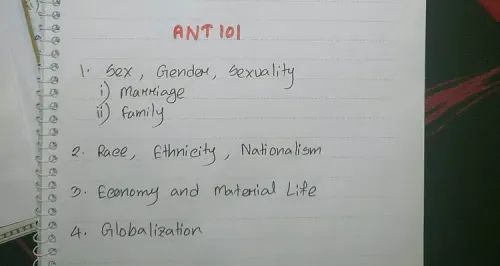 ANT 101
1. Sex, Gender, Sexuality
i) Marriage
ii) family
2. Race, Ethnicity, Nationalism
3. Economy and Material Life
4. Globalization